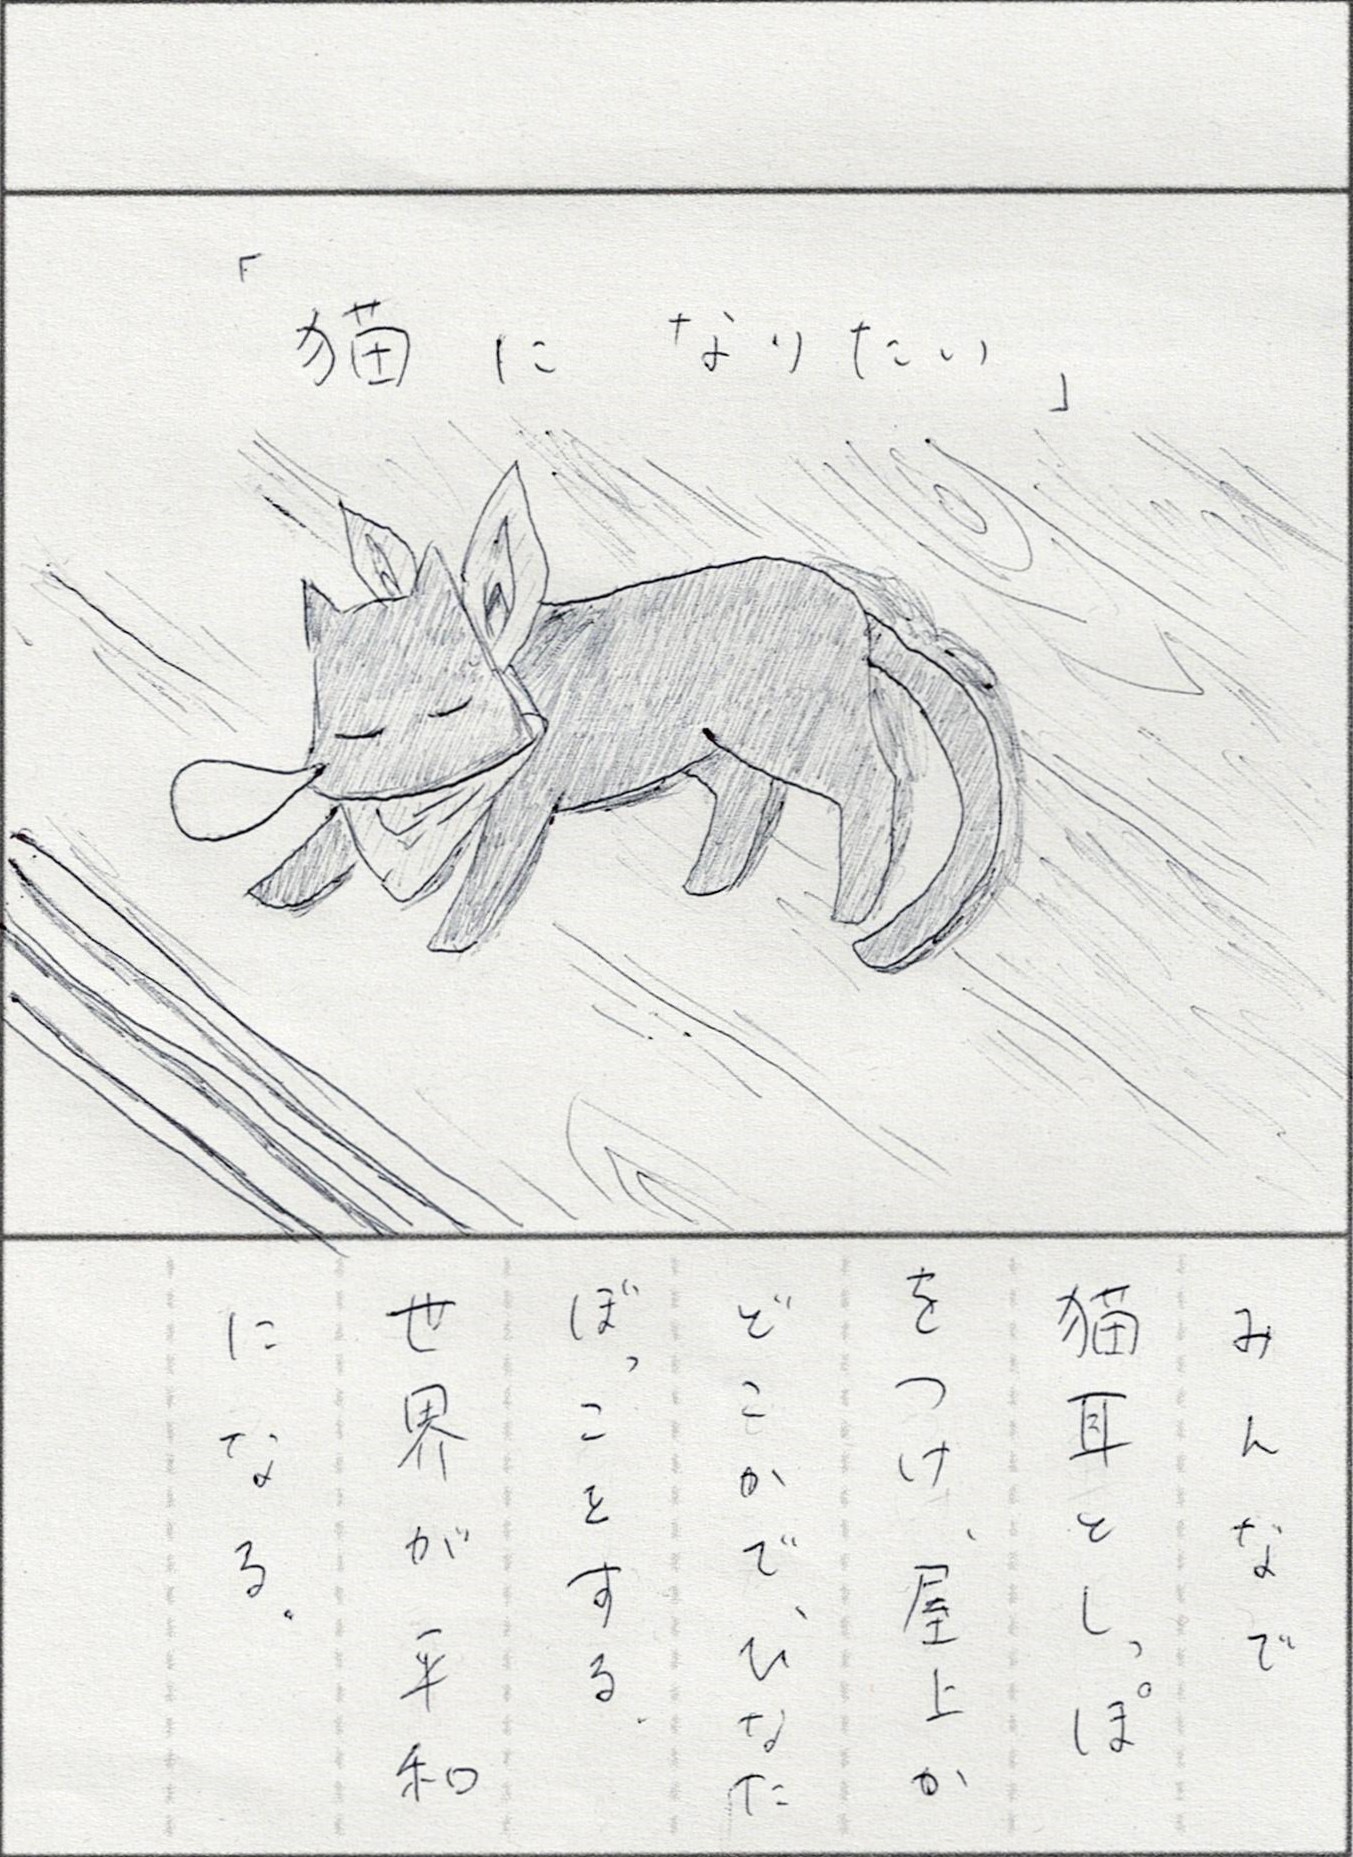 「猫になりたい」
みんなで
猫耳としっぽ
をつけ、屋上か
どこかで、ひなた
ぼっことする。
世界が平和
になる。